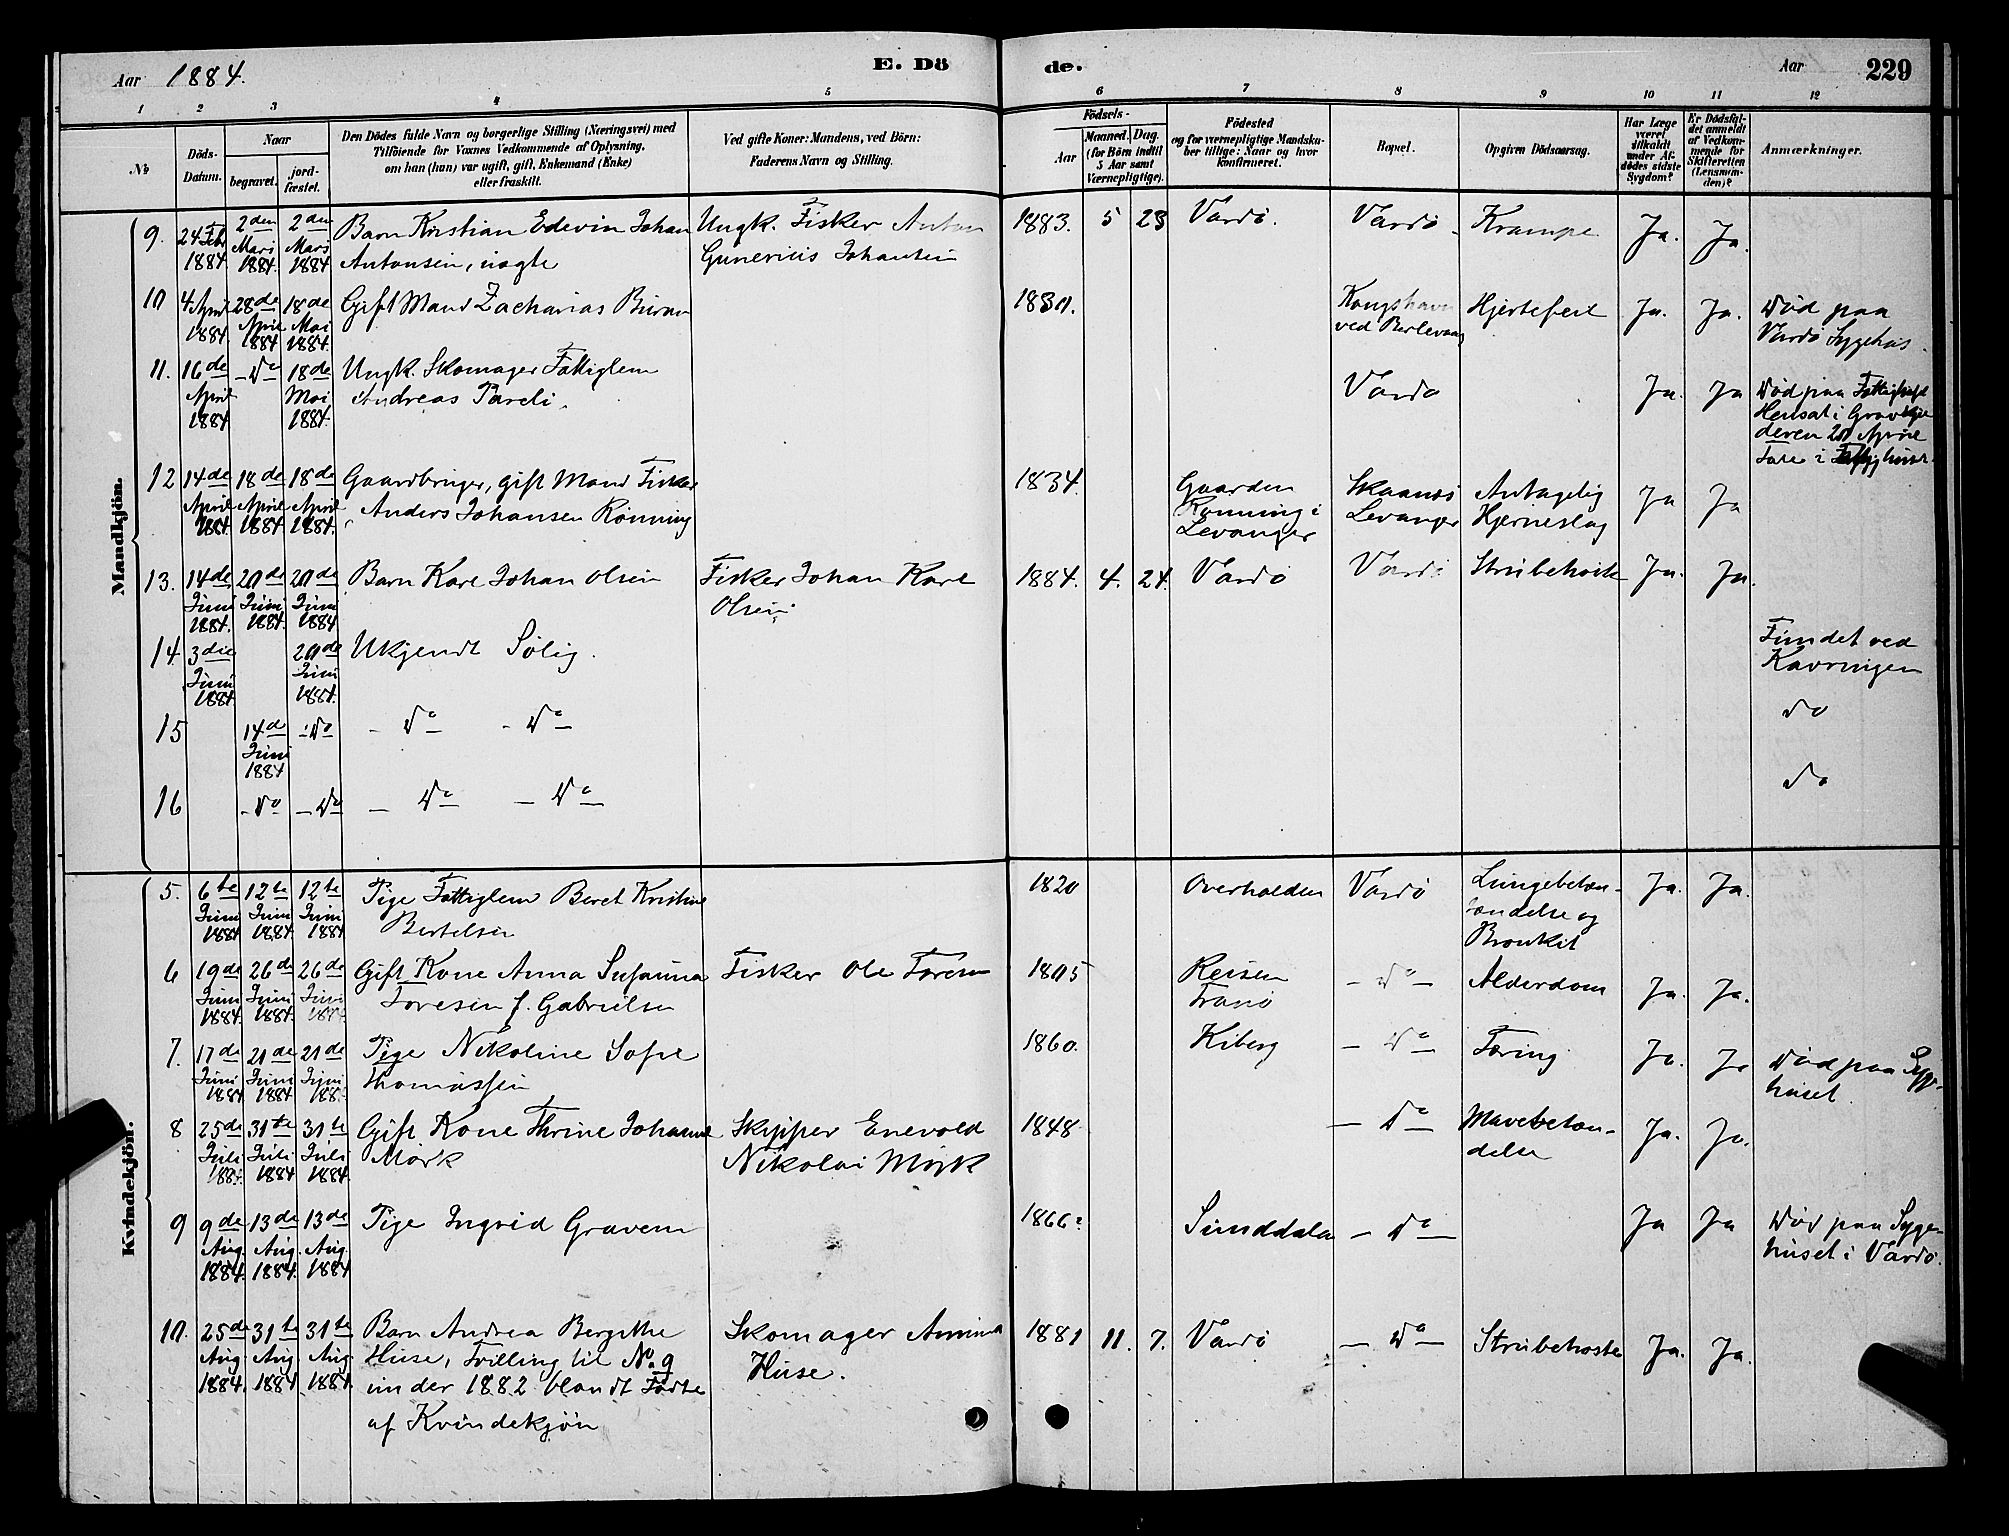 Aar 1884.
E. Dö
de.
Aar
229
1 2 3 4 5 6 7 8 9 10 11 12
No
Döds-
Datum.
Naar
begravet.
jord-
fæstet.
Den Dödes fulde Navn og borgerlige Stilling (Næringsvei) med
Tilföiende for Voxnes Vedkommende af Oplysning,
om han (hun) var ugift, gift, Enkemand (Enke)
eller fraskilt.
Ved gifte Koner: Mandens, ved Börn:
Faderens Navn og Stilling.
Födsels-
Aar
Maaned. Dag.
(for Börn indtil
5 Aar samt
Værnepligtige).
Födested
og for værnepligtige Mandska-
ber tillige: Naar og hvor
konfirmeret.
Bopæl.
Opgiven Dödsaarsag.
Har Læge
været
tilkaldt
under Af-
dödes sidste
Sygdom?
Er Dödsfal-
det anmeldt
af Vedkom-
mende for
Skifteretten
(Lensman-
den)?
Anmærkninger.
Mandkjön.
9. 24 Feb 1884 2den Mars 1884 2den Mars 1884 Barn Kristian Edevin Johan
Antonsen, uægte
Ungk. Fisker Anton
Gunerius Johansen
1883. 5 23 Vardö. Vardö Krampe Ja. Ja.
10 4 April 1884 28de April 1884 18de Mai 1884. Gift Mand Zacharias
1830. Kongshavn
ved Berlevaag
Hjertefeil Ja. Ja. Död paa
Vardö Sygehus.
11. 16de April 1884 - Do 18de Mai 1884. Ungk. Skomager Fattiglem
Andreas
Vardö Ja. Ja Död paa
Hensat i
deren 20 April
12 14de April 1884. 18de April 1884 18de April 1884. Gaardbruger, gift Mand Fisker
Anders Johansen Rönning
1834. Gaarden
Rönning i
Levanger
Levanger
Antagelig
Hjerneslag
Ja Ja
13. 14de Juni 1884. 20de Juni 1884. 20de Juni 1884 Barn Karl Johan Olsen
Fisker Johan Karl
Olsen.
1884. 4. 24. Vardö Vardö Strubehoste Ja. Ja.
14 3die Juni 1884. 20de Juni 1884. Ukjendt Lölig.
Fundet ved
Kavringen
15 14de Juni 1884 - Do - Do - - Do - do
16 - Do - Do - Do - - Do - do
Kvindekjön.
5. 6te Juni 1884 12te Juni 1884 12te Juni 1884 Pige Fattiglem Beret Kristine
Bertelsen
1820 Overhalden Vardö Lungebetæn-
tændelse og
Bronkit
Ja. Ja.
6 19de Juni 1884. 26de Juni 1884. 26de Juni 1884. Gift Kone Anna Susanna
Toresen f. Gabrielsen
Fisker Ole Toresen
1805 Reisen
Tranö
- Do - Alderdom Ja. Ja.
7. 17de Juni 1884 21de Juni 1884 21de Juni 1884 Pige Nikoline Sofie
Thomassen
1860. Kiberg - Do - Tæring Ja. Ja Död paa Syge-
huset.
8 25de Juli 1884. 31te Juli 1884 31te Juli 1884. Gift Kone Thrine Johanne
Mörk
Skipper Enevold
Nikolai Mörk
1848 - Do - Mavebetæn-
delse
Ja. Ja.
9 9de Aug. 1884. 13de Aug. 1884. 13de Aug. 1884 Pige Ingrid Gravem
1866? Sunddalen - Do - Ja Ja Död paa Syge-
huset i Vardö.
10. 25de Aug. 1884. 31te Aug. 1884 31te Aug 1884. Barn Andrea Bergithe
Huse, Tvilling til No. 9
under 1882 blandt Födte
af Kvindekjön
Skomager
Huse.
1881 11. 7. Vardö - Do - Strubehoste Ja. Ja.